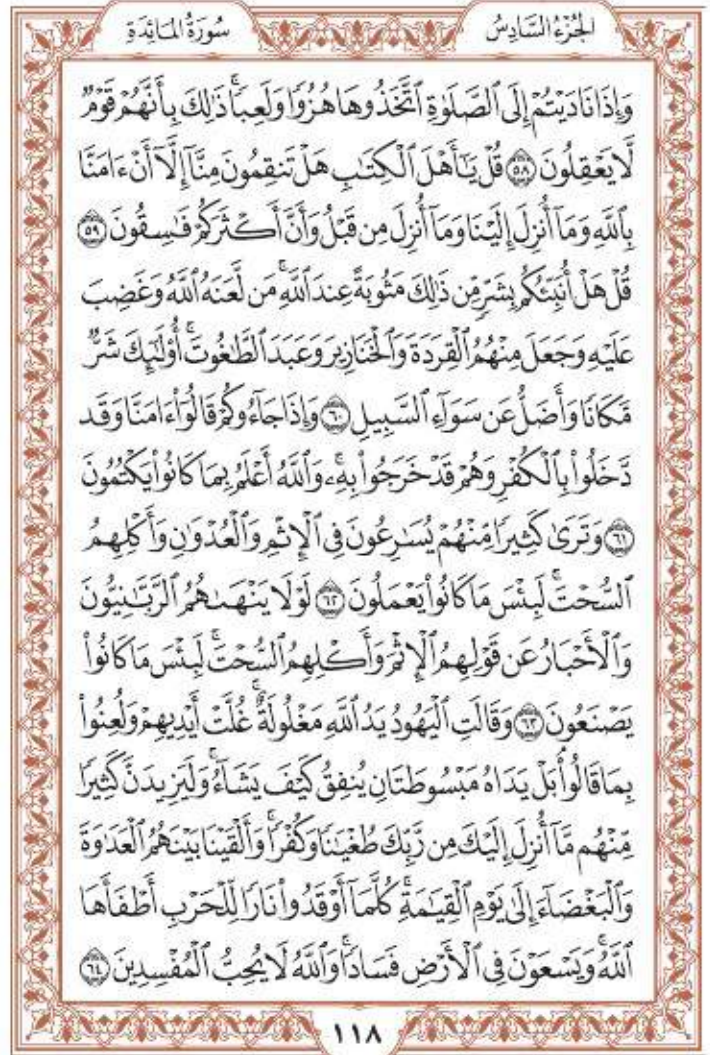 الجُزْءُ السَّادِسُ
سُورَةُ المَائِدَةِ
وَإِذَا نَادَيْتُمْ إِلَى ٱلصَّلَوٰةِ ٱتَّخَذُوهَا هُزُوٗا وَلَعِبٗاۚ ذَٰلِكَ بِأَنَّهُمۡ قَوۡمٞ
لَّا يَعۡقِلُونَ ٥٨ قُلۡ يَٰٓأَهۡلَ ٱلۡكِتَٰبِ هَلۡ تَنقِمُونَ مِنَّآ إِلَّآ أَنۡ ءَامَنَّا
بِٱللَّهِ وَمَآ أُنزِلَ إِلَيۡنَا وَمَآ أُنزِلَ مِن قَبۡلُ وَأَنَّ أَكۡثَرَكُمۡ فَٰسِقُونَ ٥٩
قُلۡ هَلۡ أُنَبِّئُكُم بِشَرّٖ مِّن ذَٰلِكَ مَثُوبَةً عِندَ ٱللَّهِۚ مَن لَّعَنَهُ ٱللَّهُ وَغَضِبَ
عَلَيۡهِ وَجَعَلَ مِنۡهُمُ ٱلۡقِرَدَةَ وَٱلۡخَنَازِيرَ وَعَبَدَ ٱلطَّٰغُوتَۚ أُوْلَٰٓئِكَ شَرّٞ
مَّكَانٗا وَأَضَلُّ عَن سَوَآءِ ٱلسَّبِيلِ ٦٠ وَإِذَا جَآءُوكُمۡ قَالُوٓاْ ءَامَنَّا وَقَد
دَّخَلُواْ بِٱلۡكُفۡرِ وَهُمۡ قَدۡ خَرَجُواْ بِهِۦۚ وَٱللَّهُ أَعۡلَمُ بِمَا كَانُواْ يَكۡتُمُونَ
٦١ وَتَرَىٰ كَثِيرٗا مِّنۡهُمۡ يُسَٰرِعُونَ فِي ٱلۡإِثۡمِ وَٱلۡعُدۡوَٰنِ وَأَكۡلِهِمُ
ٱلسُّحۡتَۚ لَبِئۡسَ مَا كَانُواْ يَعۡمَلُونَ ٦٢ لَوۡلَا يَنۡهَىٰهُمُ ٱلرَّبَّٰنِيُّونَ
وَٱلۡأَحۡبَارُ عَن قَوۡلِهِمُ ٱلۡإِثۡمَ وَأَكۡلِهِمُ ٱلسُّحۡتَۚ لَبِئۡسَ مَا كَانُواْ
يَصۡنَعُونَ ٦٣ وَقَالَتِ ٱلۡيَهُودُ يَدُ ٱللَّهِ مَغۡلُولَةٌۚ غُلَّتۡ أَيۡدِيهِمۡ وَلُعِنُواْ
بِمَا قَالُواْۘ بَلۡ يَدَاهُ مَبۡسُوطَتَانِ يُنفِقُ كَيۡفَ يَشَآءُۚ وَلَيَزِيدَنَّ كَثِيرٗا
مِّنۡهُم مَّآ أُنزِلَ إِلَيۡكَ مِن رَّبِّكَ طُغۡيَٰنٗا وَكُفۡرٗاۚ وَأَلۡقَيۡنَا بَيۡنَهُمُ ٱلۡعَدَٰوَةَ
وَٱلۡبَغۡضَآءَ إِلَىٰ يَوۡمِ ٱلۡقِيَٰمَةِۚ كُلَّمَآ أَوۡقَدُواْ نَارٗا لِّلۡحَرۡبِ أَطۡفَأَهَا
ٱللَّهُۚ وَيَسۡعَوۡنَ فِي ٱلۡأَرۡضِ فَسَادٗاۚ وَٱللَّهُ لَا يُحِبُّ ٱلۡمُفۡسِدِينَ ٦٤
١١٨